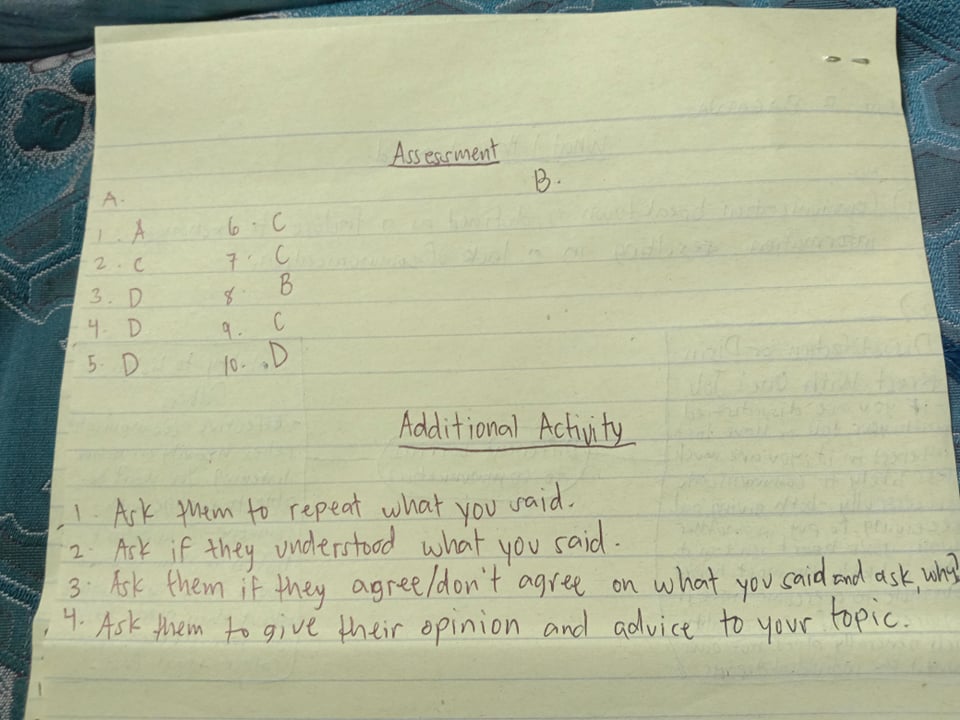 Assessment
B.
A.
1. A 6. C
2. C 7. C
3. D 8. B
4. D 9. C
5. D 10. D
Additional Activity
1. Ask them to repeat what you said.
2. Ask if they understood what you said.
3. Ask them if they agree/don't agree on what you said and ask, why?
4. Ask them to give their opinion and advice to your topic.